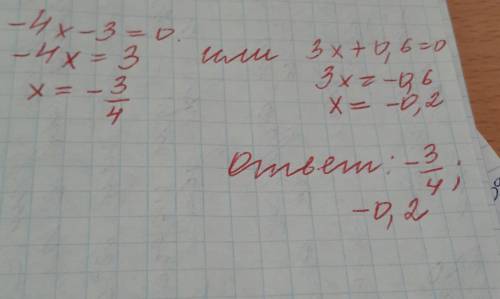 -4x-3=0.
-4x=3
x=-3/4
или
3x+0,6=0
3x=-0,6
x=-0,2
Ответ: -3/4;
-0,2